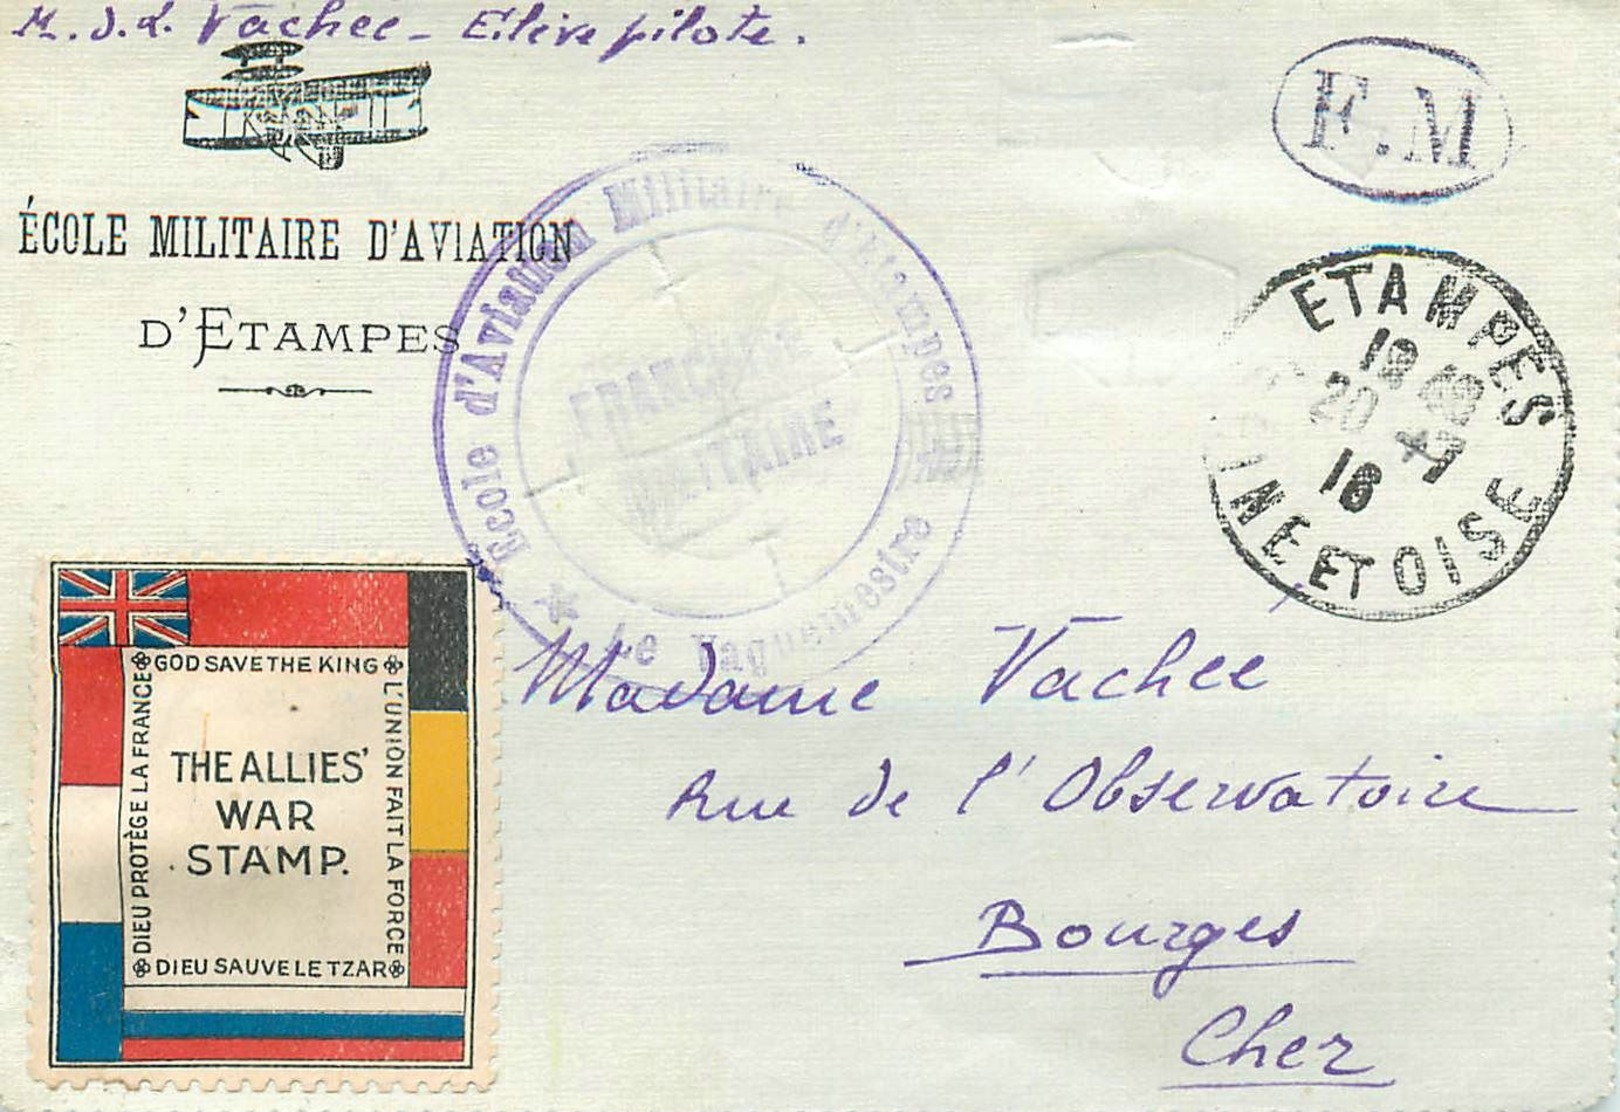 M. J. L. Vachee - Elève pilote.
F.M
ÉCOLE MILITAIRE D'AVIATION
D'ETAMPES
Ecole d'Aviation Militaire d'Etampes
FRANCHISE
MILITAIRE
Le Vaguemestre
ETAMPES
20
16
INE ET OISE
GOD SAVE THE KING
DIEU PROTÈGE LA FRANCE
L'UNION FAIT LA FORCE
THE ALLIES'
WAR
STAMP.
DIEU SAUVE LE TZAR
Madame Vachee
Rue de l'Observatoire
Bourges
Cher